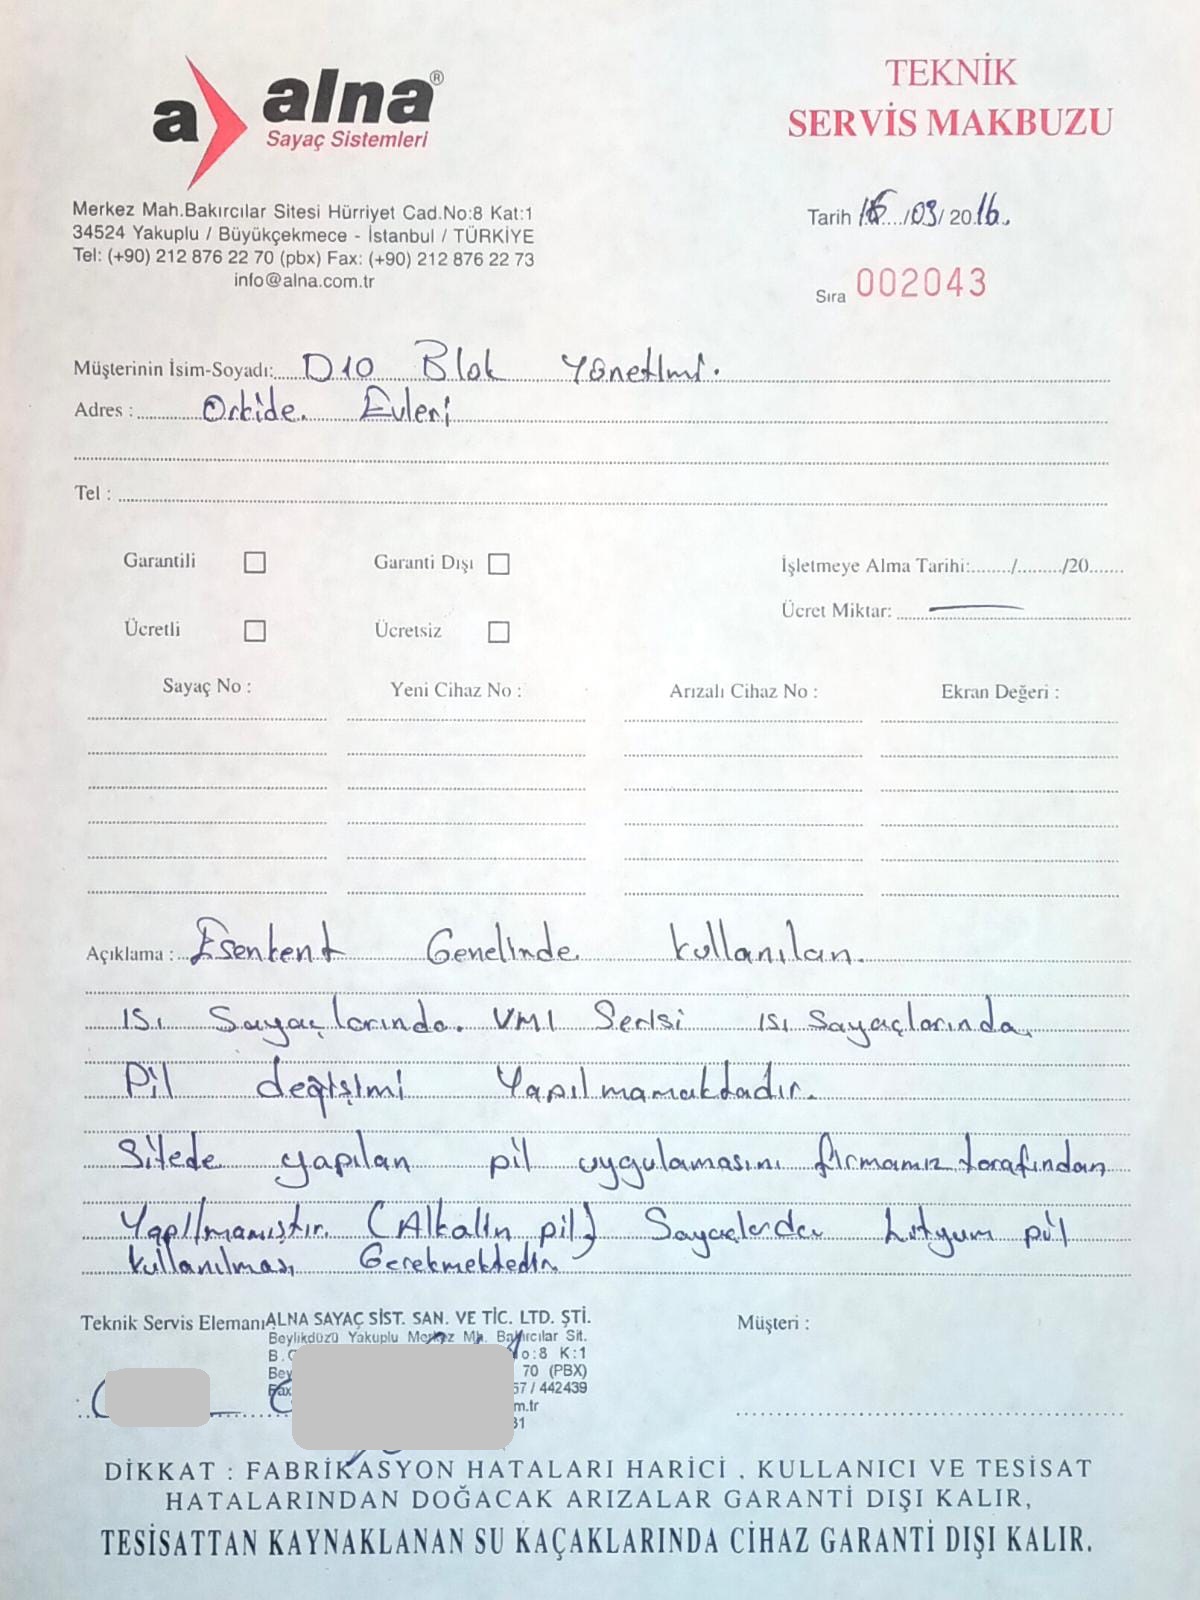 a alna®
Sayaç Sistemleri
TEKNİK
SERVİS MAKBUZU
Merkez Mah.Bakırcılar Sitesi Hürriyet Cad.No:8 Kat:1
34524 Yakuplu / Büyükçekmece - İstanbul / TÜRKİYE
Tel: (+90) 212 876 22 70 (pbx) Fax: (+90) 212 876 22 73
info@alna.com.tr
Tarih /03/ 2016.
Sıra 002043
Müşterinin İsim-Soyadı: D10 Blok Yönetimi.
Adres : Orkide Evleri
Tel :
Garantili Garanti Dışı İşletmeye Alma Tarihi:......./......../20.......
Ücretli Ücretsiz Ücret Miktar: —
Sayaç No : Yeni Cihaz No : Arızalı Cihaz No : Ekran Değeri :
Açıklama : Esenkent Genelinde kullanılan.
ısı Sayaçlarında. VM1 Serisi ısı sayaçlarında
Pil değişimi Yapılmamaktadır.
Sitede yapılan pil uygulamasını firmamız tarafından
Yapılmamıştır. (Alkalin pil) Sayaçlarda Lityum pil
kullanılması Gerekmektedir.
Teknik Servis Elemanı ALNA SAYAÇ SİST. SAN. VE TİC. LTD. ŞTİ.
Beylikdüzü Yakuplu Merkez Mh. Bakırcılar Sit.
B. o:8 K:1
Bey 70 (PBX)
Fax 57 / 442439
m.tr
31
Müşteri :
DİKKAT : FABRİKASYON HATALARI HARİCİ , KULLANICI VE TESİSAT
HATALARINDAN DOĞACAK ARIZALAR GARANTİ DIŞI KALIR,
TESİSATTAN KAYNAKLANAN SU KAÇAKLARINDA CİHAZ GARANTİ DIŞI KALIR.